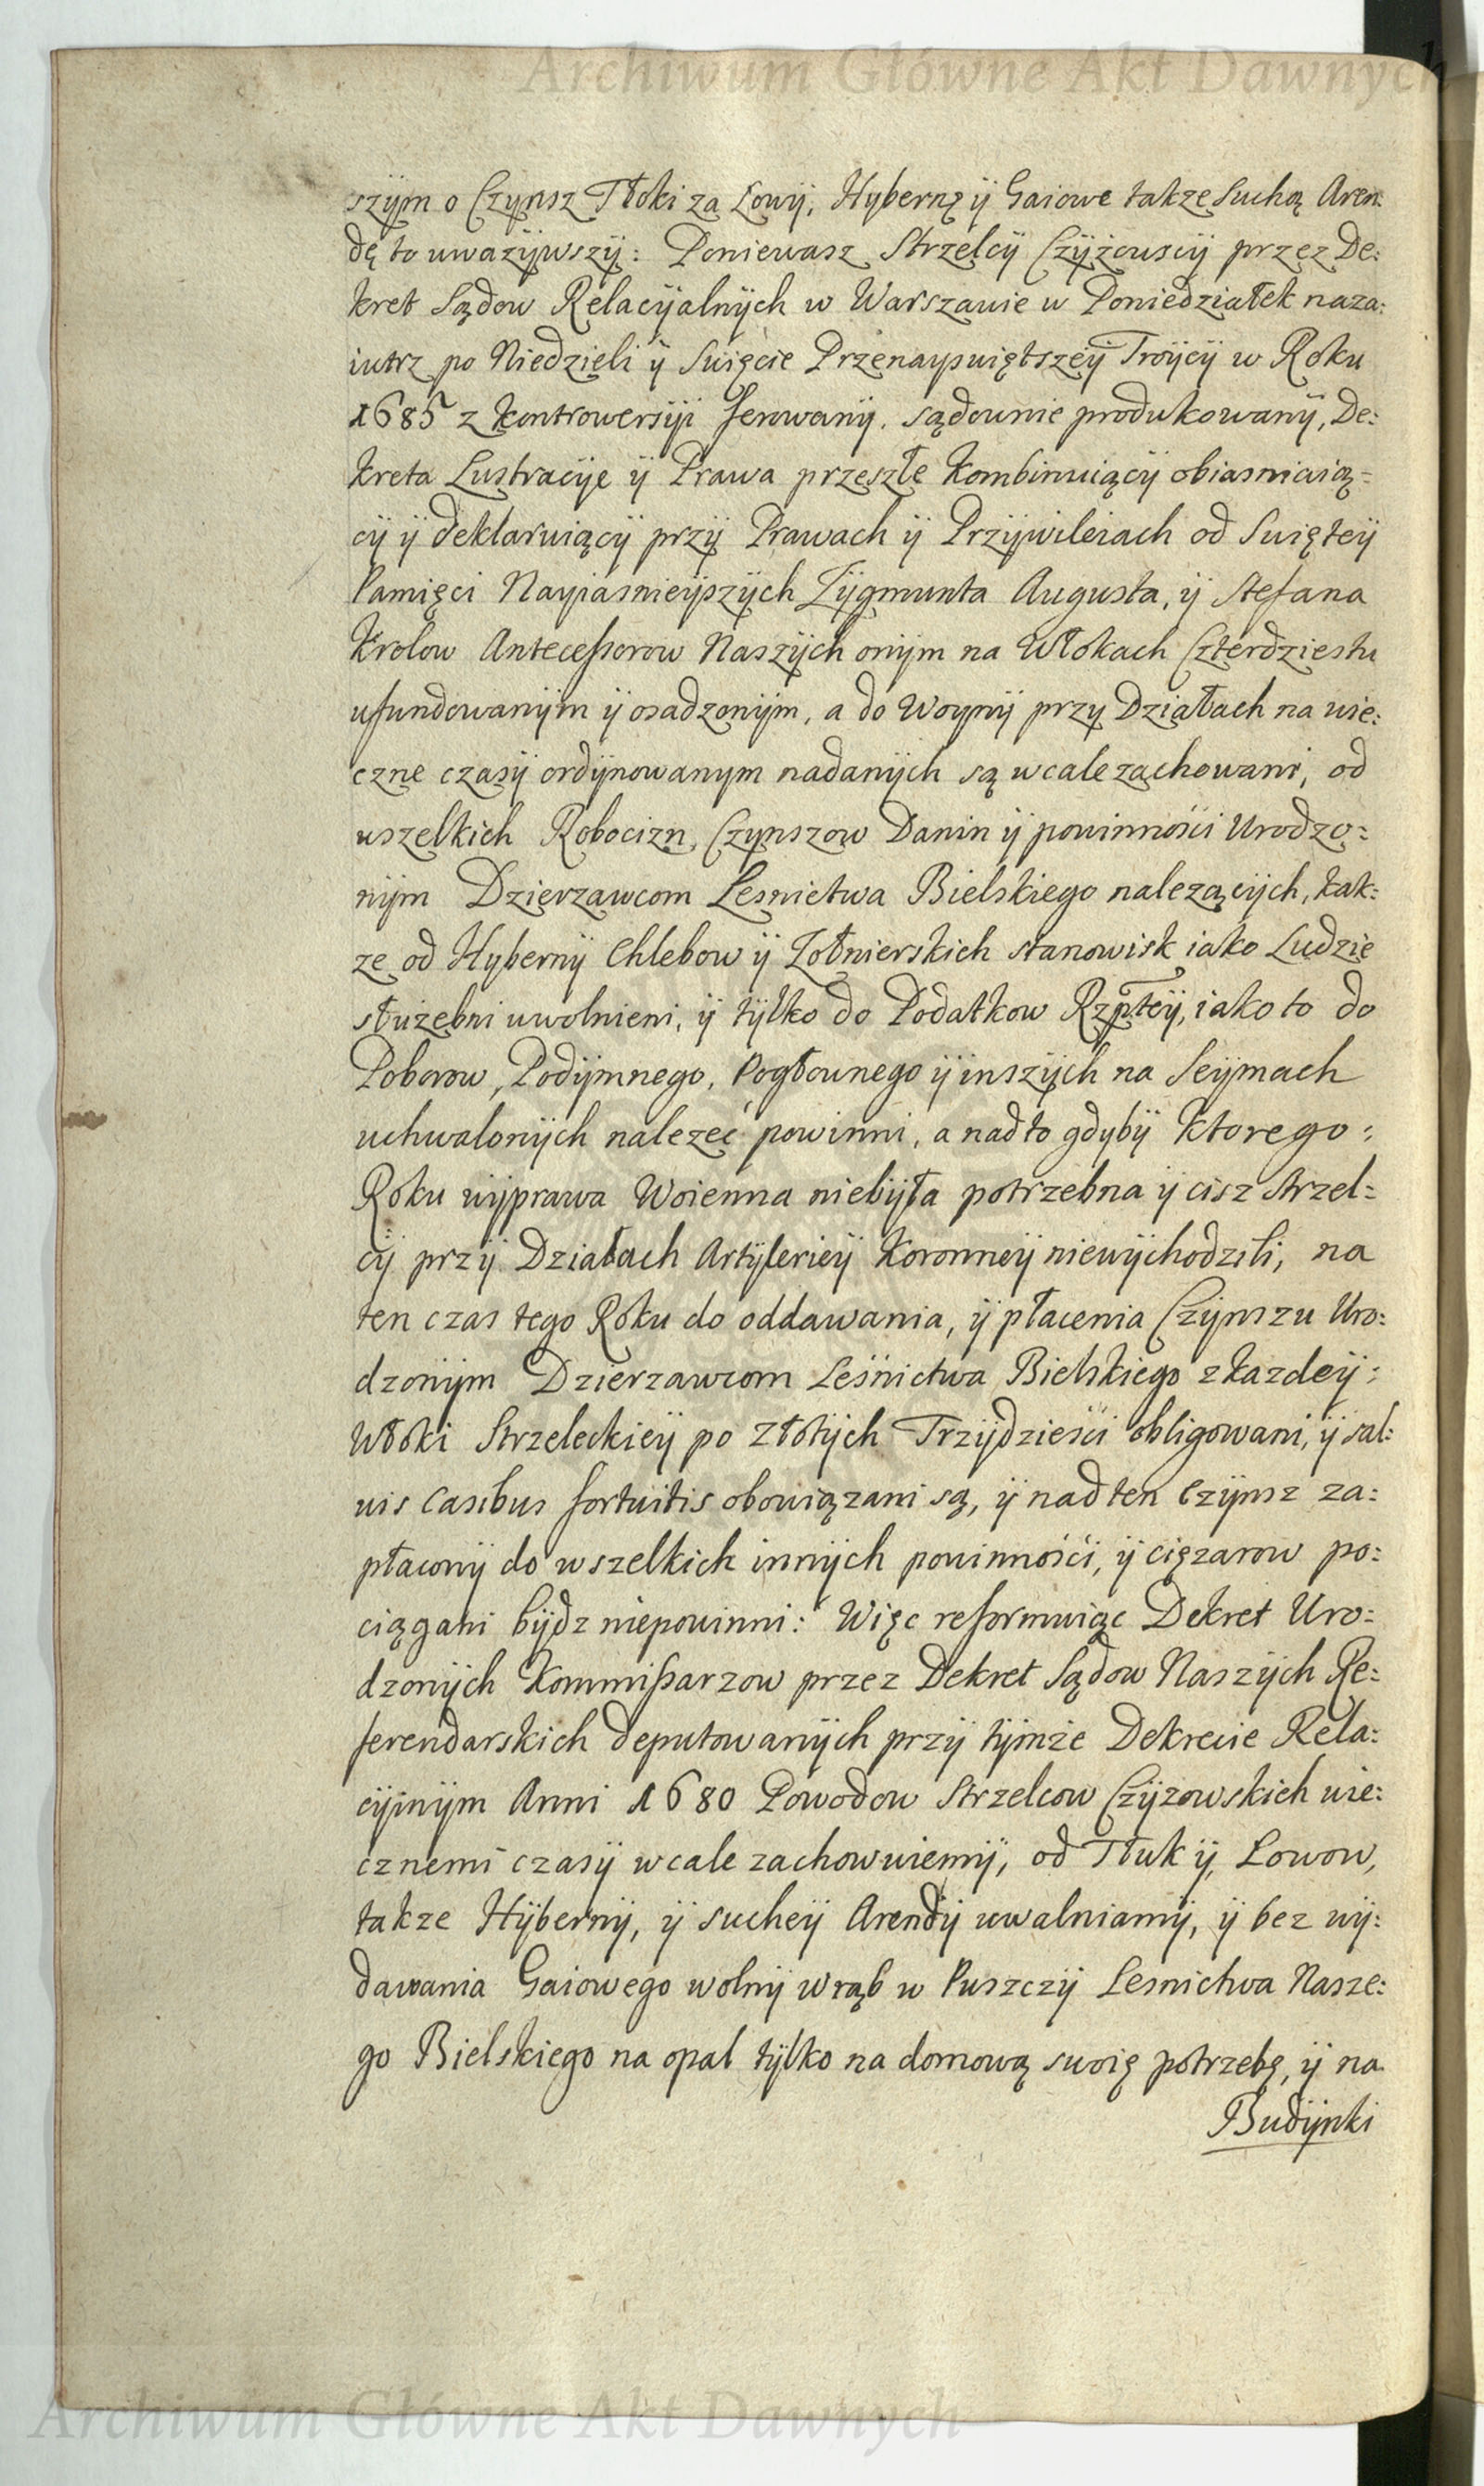 Archiwum Główne Akt Dawnych
szÿm o Czÿnsz Tłoki za Łowÿ, Hybernę ÿ Gaiowe takze Suchą Aren:
dę to uwazÿwszÿ: Poniewasz Strzelcÿ Czÿżowscÿ przez De:
kret Sądow Relacÿalnÿch w Warszawie w Poniedziałek naza:
iutrz po Niedzieli ÿ Swięcie Przenayswiętszeÿ Troÿcÿ w Roku
1685 z kontrowersÿi ferowanÿ, sądownie produkowanÿ, De:
kreta Lustracÿe ÿ Prawa przeszłe kombinuiącÿ obiasniaią=
cÿ ÿ deklaruiącÿ przÿ Prawach ÿ Przÿwileiach od Swięteÿ
Pamięci Nayiasnieÿszÿch Zÿgmunta Augusta, ÿ Stefana
Krolow Antecessorow Naszÿch onÿm na Włokach Czterdziestu
ufundowanÿm ÿ osadzonÿm, a do Woynÿ przy Działach na wie:
czne czasÿ ordÿnowanym nadanÿch są wcale zachowani, od
wszelkich Robocizn, Czynszow Danin ÿ powinności Urodzo=
nÿm Dzierzawcom Lesnictwa Bielskiego nalezącÿch, tak:
ze od Hybernÿ Chlebow ÿ Zołnierskich stanowisk iako Ludzie
służebni uwolnieni, ÿ tÿlko do Podatkow Rzpteÿ, iako to do
Poborow, Podÿmnego, Pogłownego ÿ inszÿch na Seÿmach
uchwalonÿch nalezeć powinni, a nadto gdybÿ ktorego:
Roku wÿprawa Woienna niebÿła potrzebna ÿ cisz Strzel=
cÿ przÿ Działach Artÿlerieÿ Koronneÿ niewÿchodzili, na
ten czas tego Roku do oddawania, ÿ płacenia Czÿnszu Uro:
dzonÿm Dzierzawcom Leśnictwa Bielskiego z kazdeÿ:
Włoki Strzeleckieÿ po Złotÿch Trzÿdzieści obligowani, ÿ sal:
vis Casibus fortuitis obowiązani są, ÿ nad ten Czÿnsz za:
płaconÿ do wszelkich innÿch powinności, ÿ cięzarow po:
ciągani bÿdz niepowinni: Więc reformuiąc Dekret Uro=
dzonÿch Kommissarzow przez Dekret Sądow Naszÿch Re:
ferendarskich deputowanÿch przÿ tÿmże Dekrecie Rela:
cÿinÿm Anni 1680 Powodow Strzelcow Czÿzowskich wie:
cznemi czasÿ wcale zachowuiemÿ, od Tłuk ÿ, Łowow,
takze Hÿbernÿ, ÿ sucheÿ Arendÿ uwalniamÿ, ÿ bez wÿ:
dawania Gaiowego wolnÿ wrąb w Puszczÿ Lesnictwa Nasze:
go Bielskiego na opał tÿlko na domową swoię potrzebę, ÿ na
Budÿnki
Archiwum Główne Akt Dawnych